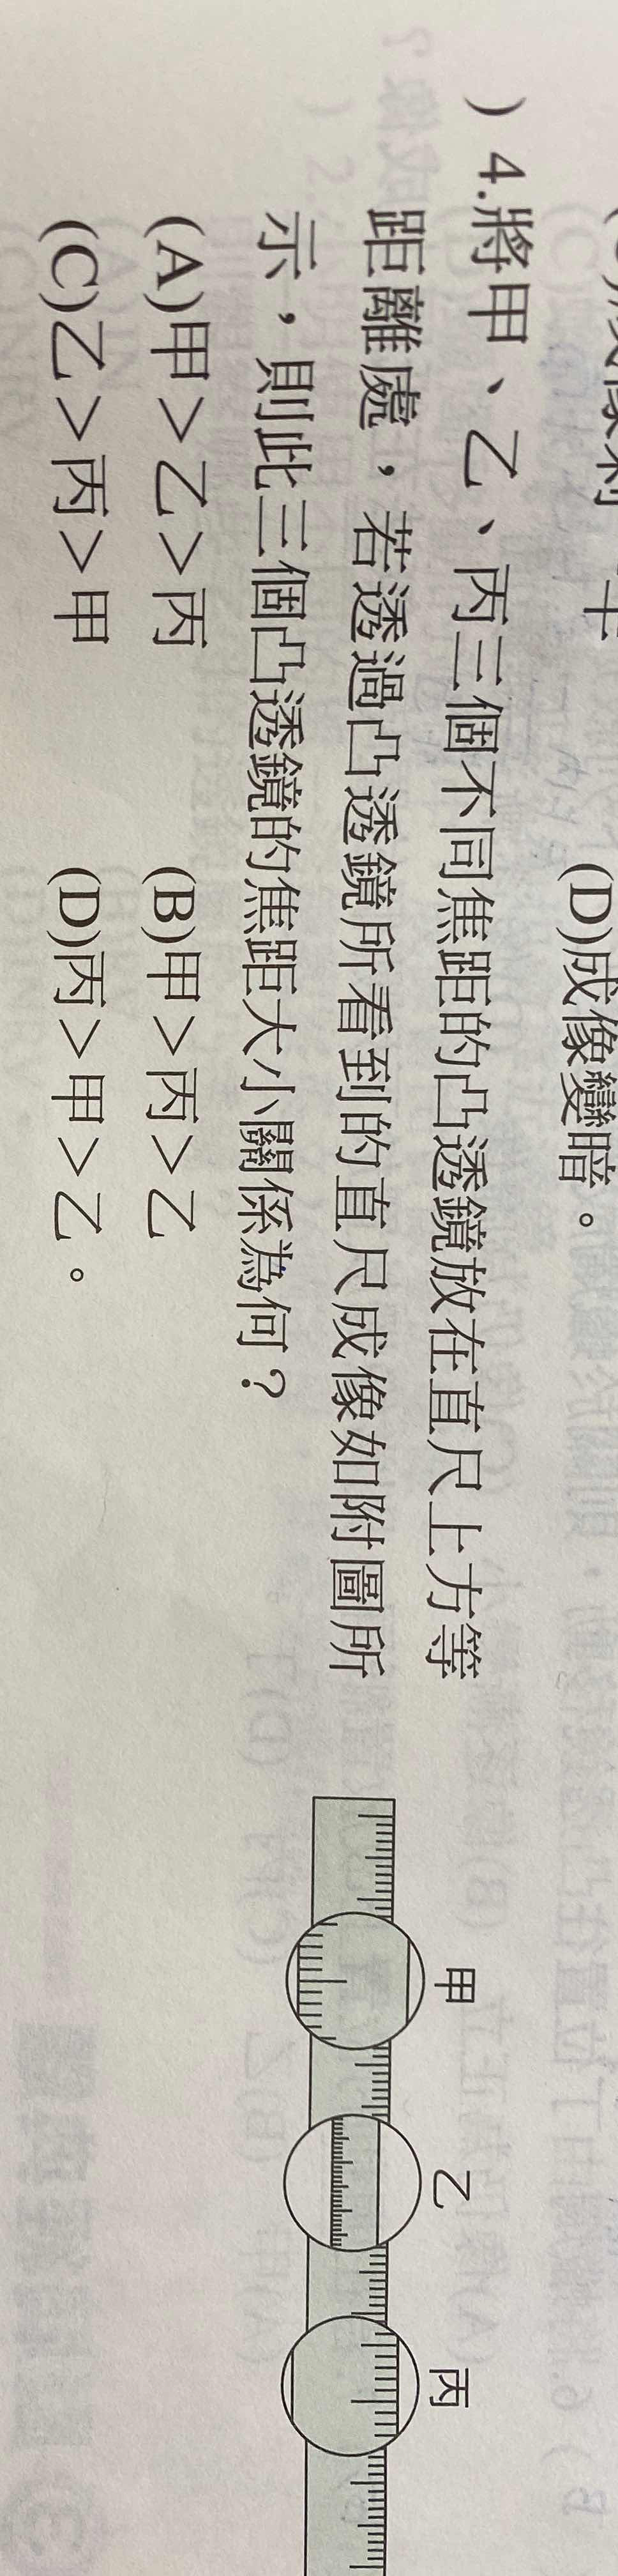 (D)成像變暗。
) 4.將甲、乙、丙三個不同焦距的凸透鏡放在直尺上方等
距離處，若透過凸透鏡所看到的直尺成像如附圖所
示，則此三個凸透鏡的焦距大小關係為何？
(A)甲＞乙＞丙 (B)甲＞丙＞乙
(C)乙＞丙＞甲 (D)丙＞甲＞乙。
甲 乙 丙